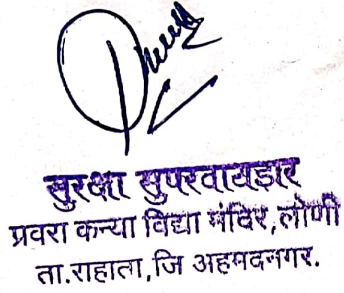 सुरक्षा सुपरवायझर
प्रवरा कन्या विद्या मंदिर,लोणी
ता.राहाता,जि अहमदनगर.